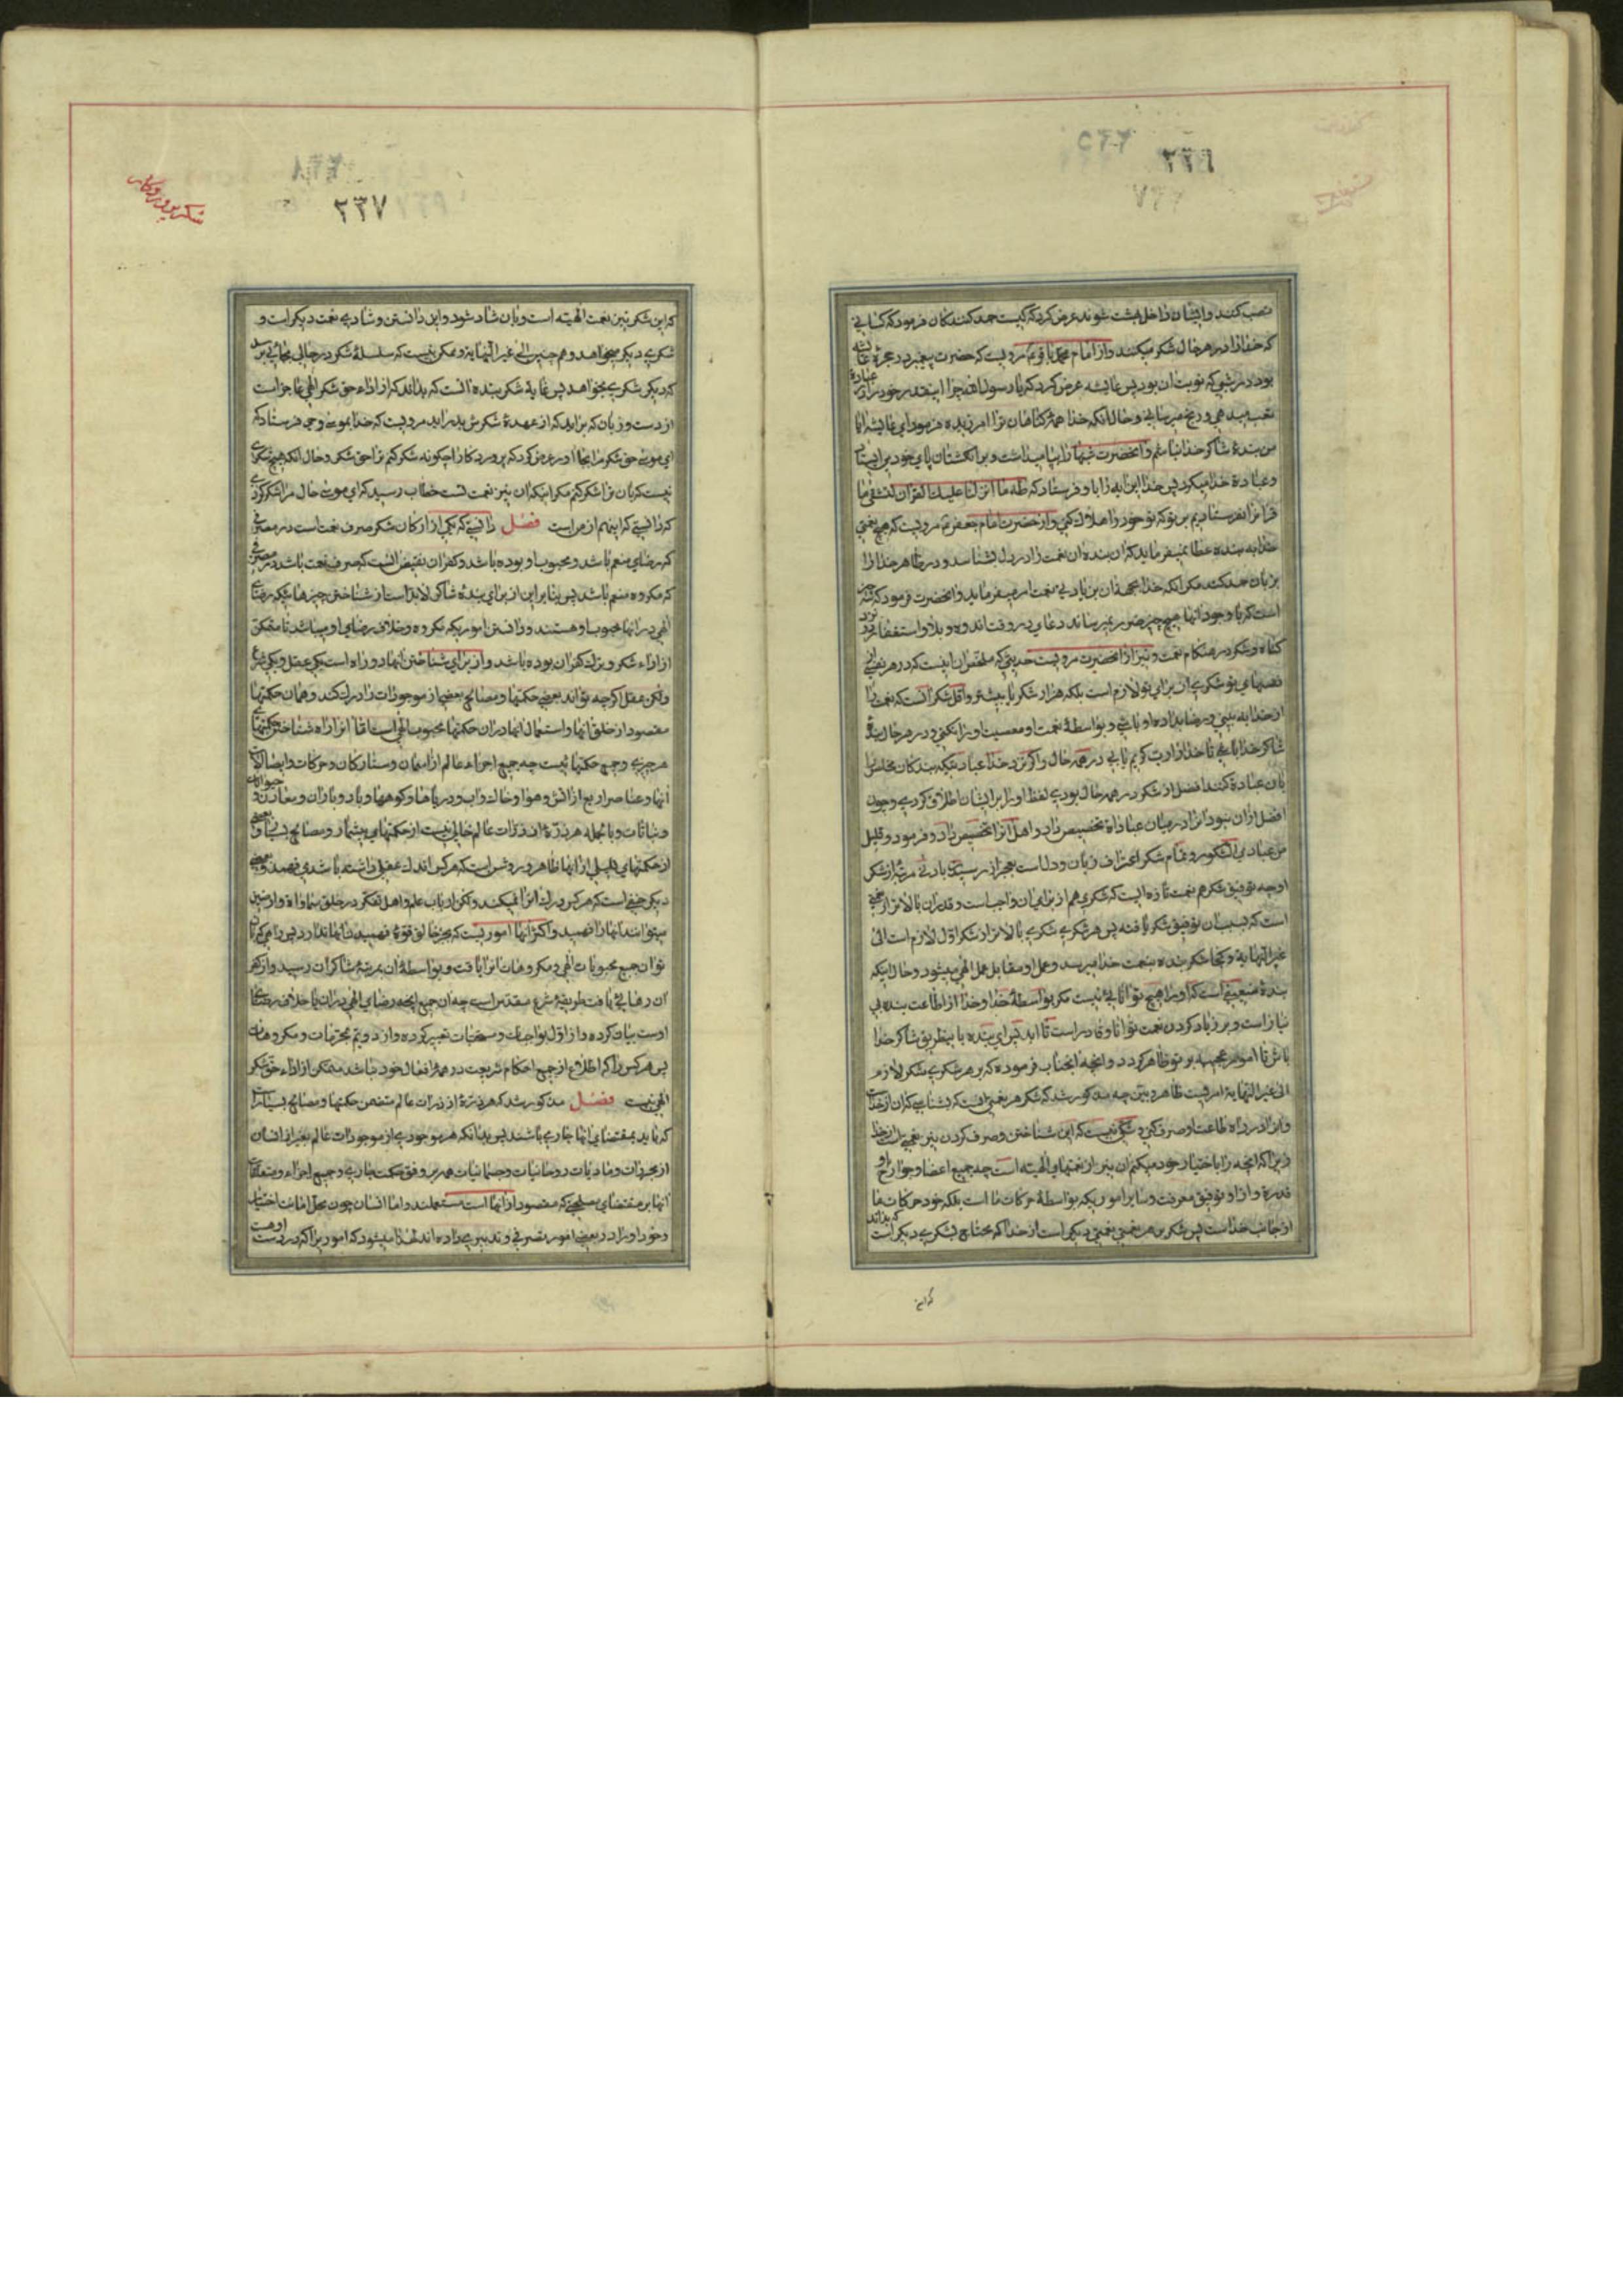 ۲۳۶
نصب کنند و ایشان داخل بهشت شوند عرض کردند که کیست حمد کنندکان فرمود که کسانی
که خدا را در هر حال شکر میکنند و از امام محمد باقر ع مرویست که حضرت پیغمبر در حجرهٔ عایشه
بود در شبی که نوبت او بود پس عایشه عرض کرد که یا رسول الله چرا اینقدر خود را از عبادة
تعب میدهی و رنج میرسانی و حال آنکه خدا همهٔ کناهان ترا امرزیده فرمود ای عایشه ایا
من بندهٔ شاکر خدا نباشم و آنحضرت شبها را بپا میداشت و بر انکشتان پای خود می ایستاد
و عبادة خدا میکرد پس خدا این ایه را باو فرستاد که طه ما انزلنا علیک القران لتشقی ما
قرانرا نفرستادیم بر تو که تو خود را هلاک کنی و از حضرت امام جعفر ع مرویست که هیچ نعمتی
خدا به بنده عطا نمیفرماید که ان بنده ان نعمت را در دل بشناسد و در ظاهر خدا را
بزبان حمد کند مکر انکه خدا بجهة ان بزیادتی نعمت امر میفرماید و انحضرت فرمود که سه چیز
است که با وجود آنها هیچ چیز ضرر نمیرساند دعای در وقت اندوه و بلا و استغفار نزد
کناه و شکر در هنکام نعمت و نیز از انحضرت مرویست حدیثی که ملخص ان اینست که در هر نفسی از
نفسهای تو شکری از برای تو لازم است بلکه هزار شکر یا بیشتر و اقل شکر انست که نعمت را
از خدا به بینی و رضا بداده او باشی و بواسطهٔ نعمت او معصیت او را نکنی و در هر حال بندهٔ
شاکر خدا باشی تا خدا را رب کریم یابی در همه حال و اکر نزد خدا عبادتیکه بندکان مخلص او
بان عبادة کنند افضل از شکر در همه حال بودی لفظ او را بر ایشان اطلاق کردی و چون
افضل از ان نبود انرا در میان عباداة تخصیص داد و اهل انرا تخصیص داد و فرمود و قلیل
من عبادی الشکور و تمام شکر اعتراف زبان و دل است بعجز از رسیدن بادنی مرتبه از شکر
او چه توفیق شکر هم نعمت تازه ایست که شکری هم از برای ان واجب است و قدر ان بالاتر از نعمتی
است که بسبب ان توفیق شکر یافته پس هر شکری شکری بالاتر از شکر اول لازم است الی
غیر النهایة و کجا شکر بنده بنعمت خدا میرسد و عمل او مقابل عمل الهی میشود و حال اینکه
بندهٔ ضعیفی است که او را هیچ توانائی نیست مکر بواسطهٔ خدا و خدا از اطاعت بنده بی
نیاز است و بر زیاد کردن نعمت توانا و قادر است تا ابد پس ای بنده باینطریق شاکر خدا
باش تا امور عجیبه بر تو ظاهر کردد و انچه انجناب فرموده که بر هر شکری شکر لازم
الی غیر النهایة امریست ظاهر و بیّن چه مذکور شد که شکر هر نعمتی انست که بشناسی که ان از خداست
و انرا در راه طاعت او صرف کنی و شکی نیست که این شناختن و صرف کردن نیز نعمتی است از خدا
زیرا که انچه را باختیار خود میکنم ان نیز از نعمتهای الهیّه است چه جمیع اعضا و جوارح و
قدرة و اراده و توفیق معرفت و سایر اموریکه بواسطهٔ حرکات ما است بلکه خود حرکات ما
از جانب خداست پس شکر بر هر نعمتی نعمتی دیکر است از خدا که محتاج بشکری دیکر است که بداند
که این
شکر پروردکار
۲۳۷
که این شکر نیز نعمت الهیّه است و بان شاد شود و این دانستن و شادی نعمت دیکر است و
شکری دیکر میخواهد و هم چنین الی غیر النهایة و ممکن نیست که سلسلهٔ شکر در حالی بجائی برسد
که دیکر شکری نخواهد پس غایة شکر بنده انست که بداند که از اداء حق شکر الهی عاجز است
از دست و زبان که براید که از عهدهٔ شکرش بدر اید مرویست که خدا بموسی وحی فرستاد که
ای موسی حق شکر مرا بجا اور عرض کرد که پروردکارا چکونه شکر کنم ترا حق شکر و حال انکه هیچ شکری
نیست که بان ترا شکر کنم مکر اینکه ان نیز نعمت تست خطاب رسید که ای موسی حال مرا شکر کردی
که دانستی که اینهم از من است فصل دانستی که یکی از ارکان شکر صرف نعمت است در مصرفی
که رضای منعم باشد و محبوب او بوده باشد و کفران نقیض انست که صرف نعمت باشد در مصرفی
که مکروه منعم باشد پس بنا بر این از برای بندهٔ شاکر لابد است از شناختن چیزهائیکه رضای
الهی در انها محبوب او هستند و دانستن اموریکه مکروه و خلاف رضای او میباشد تا متمکّن
از اداء شکر و ترک کفران بوده باشد و از برای شناختن انها دو راه است یکی عقل و یکی شرع
ولکن عقل اکرچه تواند بعضی حکمتها و مصالح بعضی از موجودات را درک کند و همان حکمتها
مقصود از خلق انها و استعمال انها در ان حکمتها محبوب الهی است امّا انرا راه شناختن حکمتهای
هر چیزی و جمیع حکمتها نیست چه جمیع اجزاء عالم از اسمان و ستارکان و حرکات و ایضا
انها و عناصر اربع از اتش و هوا و خاک و اب و دریاها و کوهها و باد و باران و معادن و حیوانات
و نباتات و بالجمله هر ذرّهٔ از ذرّات عالم خالی نیست از حکمتهای بیشمار و مصالح بسیار و بعضی
از حکمتهای قلیلی از انها ظاهر و روشن است که هر کس اندک عقلی داشته باشد می فهمد و بعضی
دیکر خفی است که هر کس درک انرا نمیکند ولکن ارباب علم و اهل تفکّر در خلق سماواة و ارضین
میتوانند انها را فهمید و اکثر انها اموریست که بجز خالق قوّهٔ فهمیدن انها ندارد پس راهی که بان
توان جمیع محبوبات الهی و مکروهات انرا یافت و بواسطهٔ ان بمرتبهٔ شاکران رسید و از کفر
ان رهائی یافت طریقهٔ شرع مقدّس است چه ان جمیع انچه رضای الهی در ان یا خلاف رضای
اوست بیان کرده و از اول بواجبات و مستحبات تعبیر کرده و از دویّم بمحرّمات و مکروهات
پس هر کس را که اطلاع از جمیع احکام شریعت در همهٔ افعال خود نباشد متمکن از اداء حق شکر
الهی نیست فصل مذکور شد که هر ذرّهٔ از ذرات عالم متضمن حکمتها و مصالح بسیار است
که باید بمقتضای انها جاری باشند پس بدانکه هر موجودی از موجودات عالم بغیر از انسان
از مجرّدات و مادیات و روحانیات و جسمانیات همه بر وفق حکمت جاری و جمیع اجزاء و متعلقات
انها بر مقتضای مصلحتی که مقصود از انها است مستعملند و اما انسان چون محل امانت اختیار
و خود او را در بعضی امور تصرفی و تدبیری داده اند لهذا میشود که امور را که در دست اوست